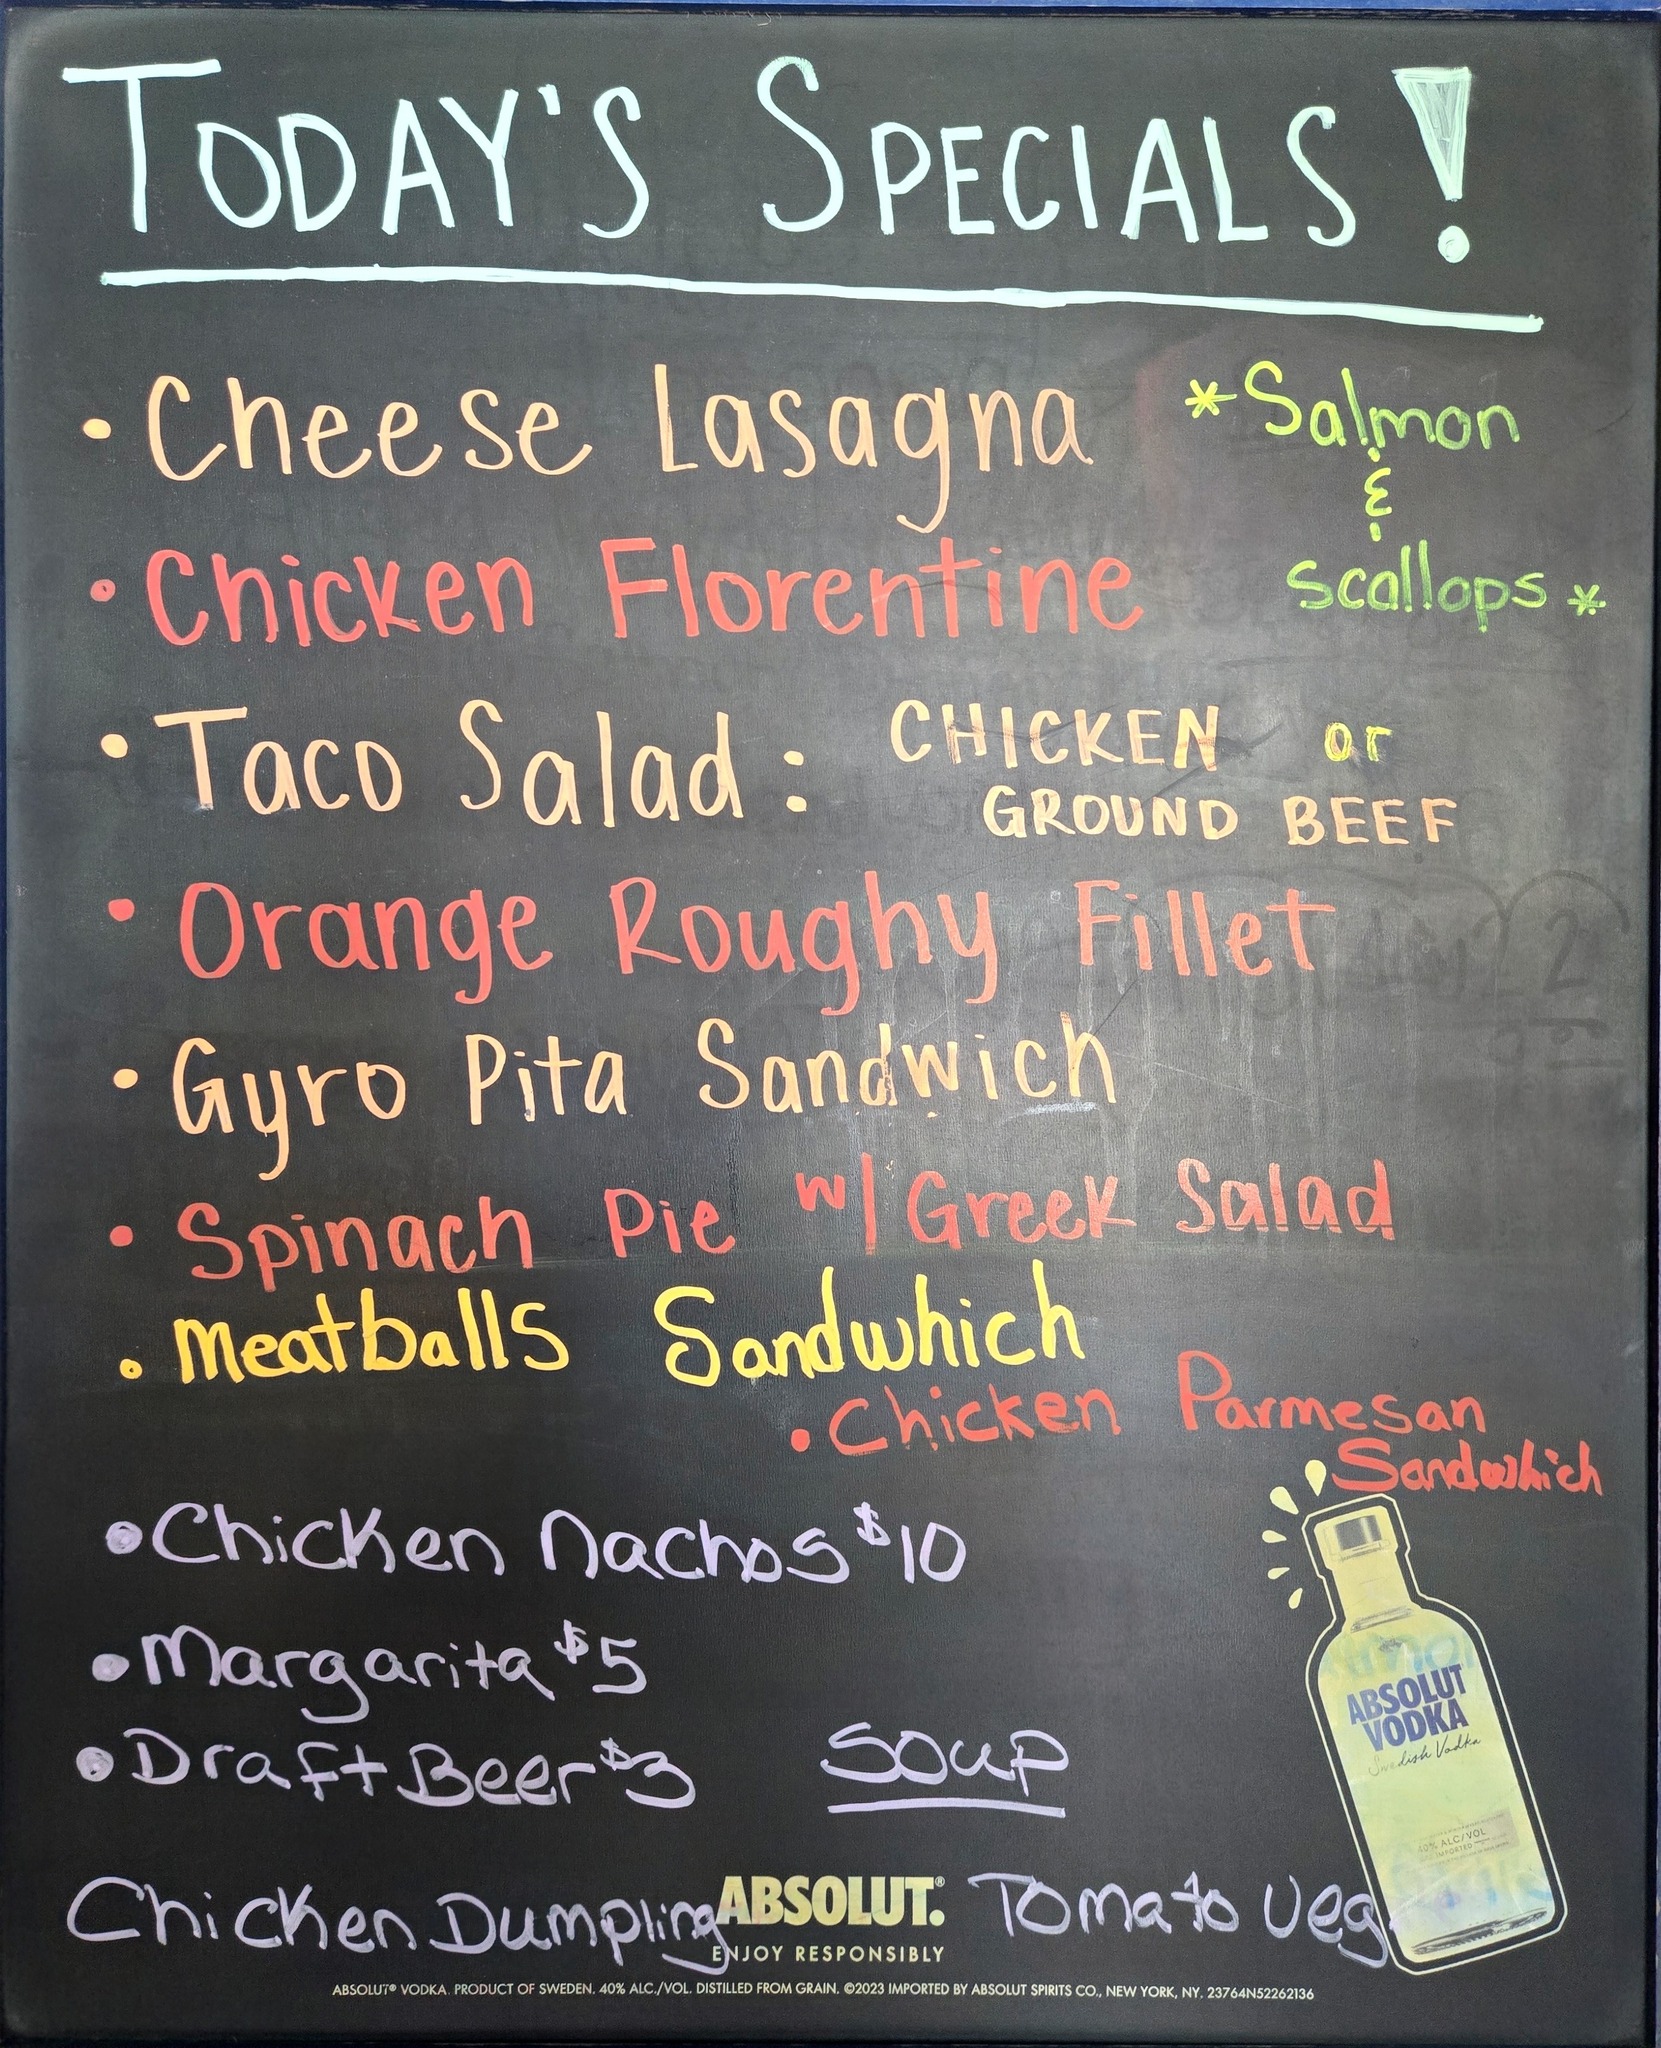 TODAY'S SPECIALS!
• Cheese Lasagna
* Salmon
&
Scallops *
• Chicken Florentine
• Taco Salad: CHICKEN or
GROUND BEEF
• Orange Roughy Fillet
• Gyro Pita Sandwich
• Spinach Pie w/ Greek Salad
• Meatballs Sandwhich
• Chicken Parmesan
Sandwhich
• Chicken Nachos $10
• Margarita $5
• Draft Beer $3
SOUP
Chicken Dumpling
Tomato Veg
ABSOLUT
VODKA
Swedish Vodka
40% ALC/VOL
IMPORTED
ABSOLUT.®
ENJOY RESPONSIBLY
ABSOLUT® VODKA. PRODUCT OF SWEDEN. 40% ALC./VOL. DISTILLED FROM GRAIN. ©2023 IMPORTED BY ABSOLUT SPIRITS CO., NEW YORK, NY. 23764N52262136